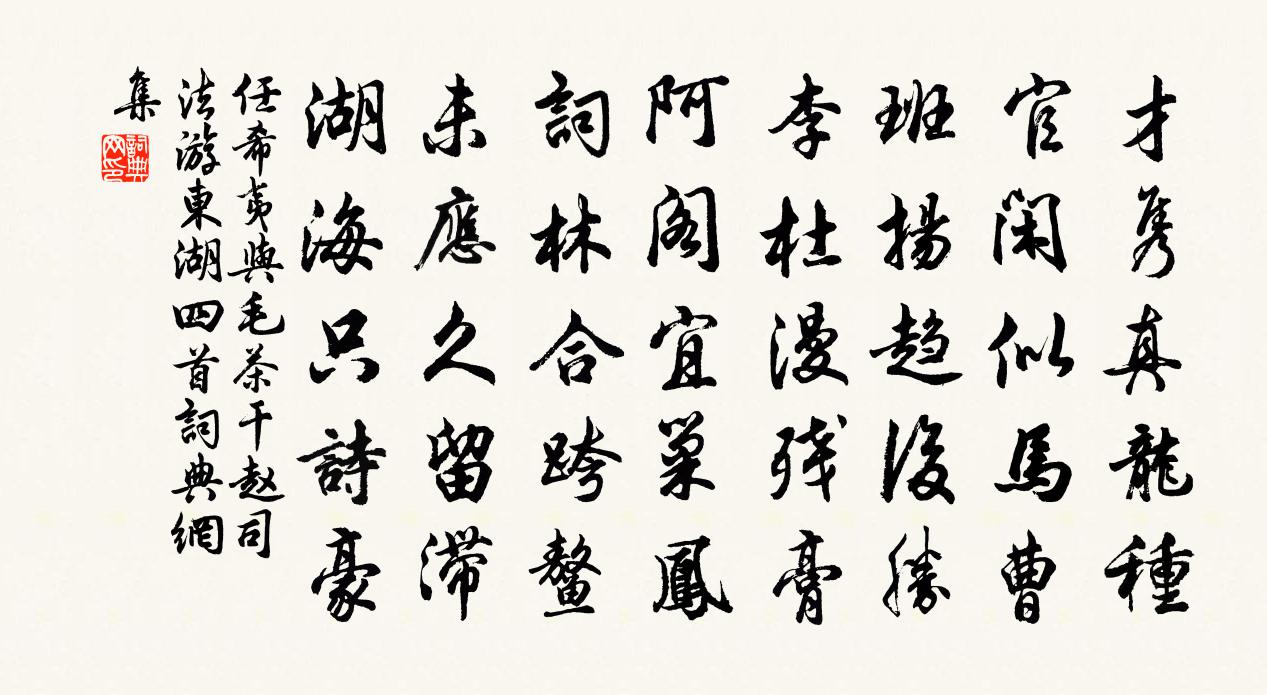 才雋真龍種
官閑似馬曹
班揚趨後勝
李杜漫殘膏
阿閣宜巢鳳
詞林合跨鰲
未應久留滯
湖海只詩豪
任希夷與毛茶干赵司
法游東湖四首詞典網
集
詞典網印